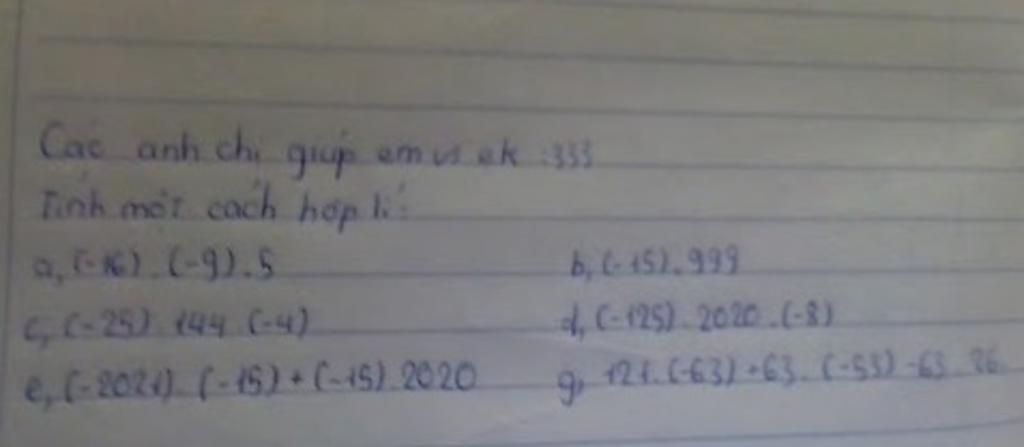 Các anh chị giúp em vs ek :333
Tính một cách hợp lí:
a, (-16) . (-9) . 5 b, (-15) . 999
c, (-25) . 144 . (-4) d, (-125) . 2020 . (-8)
e, (-2021) . (-15) + (-15) . 2020 g, 121 . (-63) + 63 . (-53) - 63 . 26